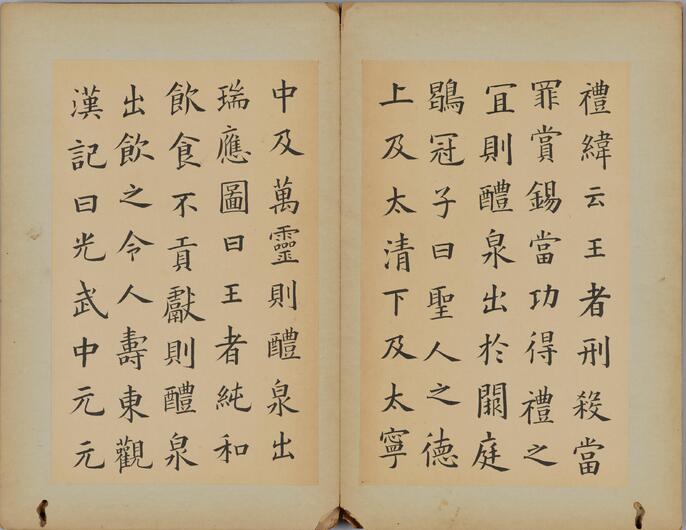 禮緯云王者刑殺當
罪賞錫當功得禮之
宜則醴泉出於闕庭
鶡冠子曰聖人之德
上及太清下及太寧
中及萬靈則醴泉出
瑞應圖曰王者純和
飲食不貢獻則醴泉
出飲之令人壽東觀
漢記曰光武中元元